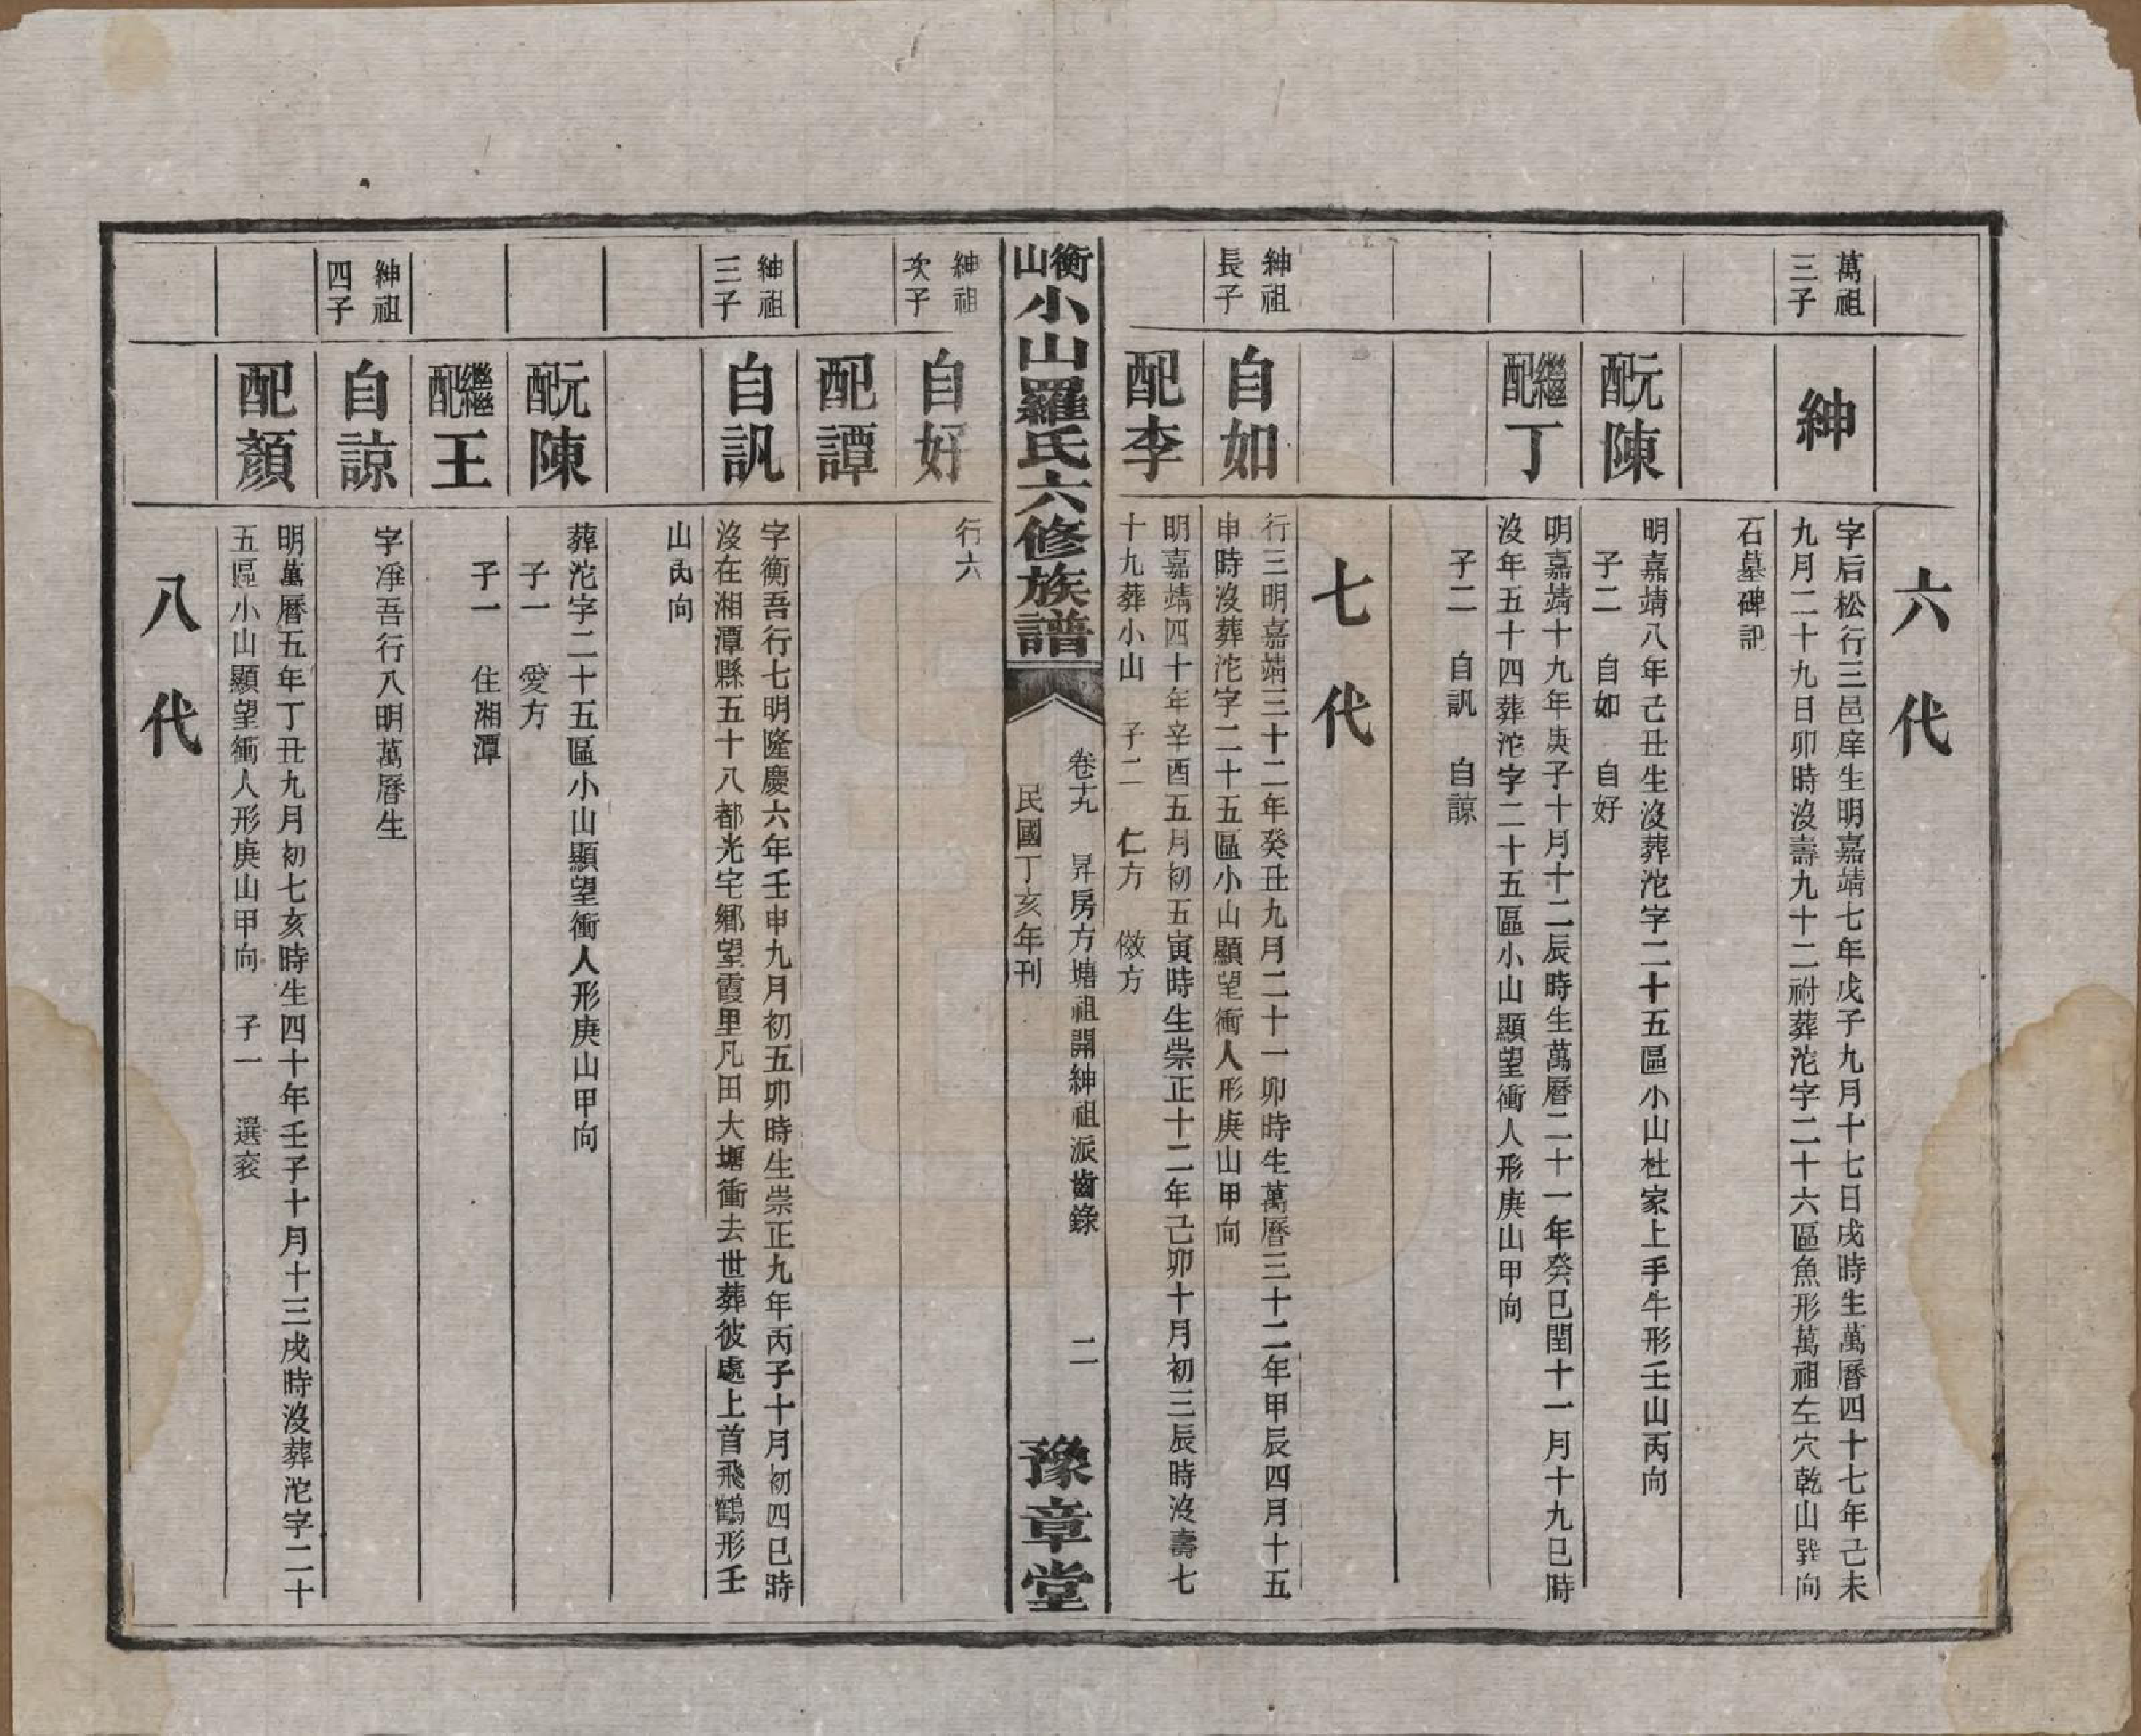 六代
萬祖
三子
紳
字后松行三邑庠生明嘉靖七年戊子九月十七日戌時生萬曆四十七年己未
九月二十九日卯時沒壽九十二祔葬沱字二十六區魚形萬祖左穴乾山巽向
石墓碑記
元配陳
明嘉靖八年己丑生沒葬沱字二十五區小山杜家上手牛形壬山丙向
子二 自如 自好
繼配丁
明嘉靖十九年庚子十月十二辰時生萬曆二十一年癸巳閏十一月十九巳時
沒年五十四葬沱字二十五區小山顯望衝人形庚山甲向
子二 自訊 自諒
七代
紳祖
長子
自如
行三明嘉靖三十二年癸丑九月二十一卯時生萬曆三十二年甲辰四月十五
申時沒葬沱字二十五區小山顯望衝人形庚山甲向
配李
明嘉靖四十年辛酉五月初五寅時生崇正十二年己卯十月初三辰時沒壽七
十九葬小山 子二 仁方 倣方
衡山小山羅氏六修族譜
卷十九 昇房方塘祖開紳祖派齒錄 二
民國丁亥年刊
豫章堂
紳祖
次子
自好
行六
配譚
紳祖
三子
自訊
字衡吾行七明隆慶六年壬申九月初五卯時生崇正九年丙子十月初四巳時
沒在湘潭縣五十八都光宅鄉望霞里凡田大塘衝去世葬彼處上首飛鶴形壬
山丙向
元配陳
葬沱字二十五區小山顯望衝人形庚山甲向
子一 愛方
繼配王
子一 住湘潭
紳祖
四子
自諒
字淨吾行八明萬曆生
配顏
明萬曆五年丁丑九月初七亥時生四十年壬子十月十三戌時沒葬沱字二十
五區小山顯望衝人形庚山甲向 子一 選袞
八代